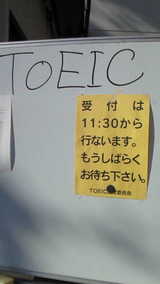 TOEIC
受付は
11:30から
行ないます。
もうしばらく
お待ち下さい。
TOEIC 委員会